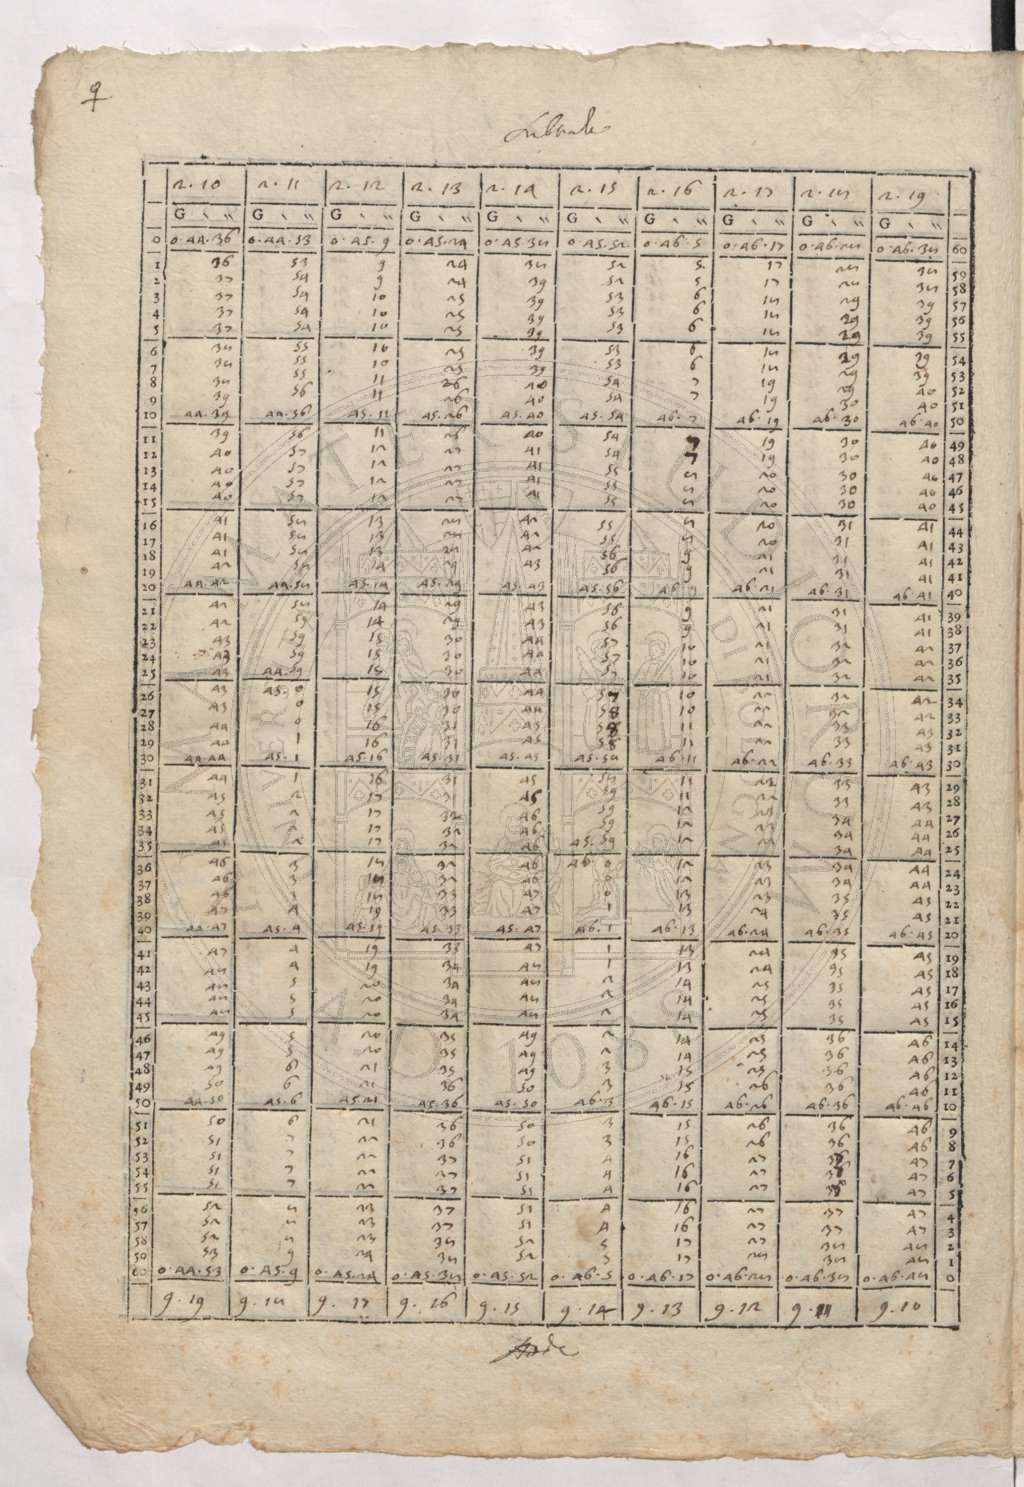 9
2.10 2.11 2.12 2.13 2.14 2.15 2.16 2.17 2.18 2.19
G ‵ ‶ G ‵ ‶ G ‵ ‶ G ‵ ‶ G ‵ ‶ G ‵ ‶ G ‵ ‶ G ‵ ‶ G ‵ ‶ G ‵ ‶
0 0.44.36 0.44.53 0.45.9 0.45.24 0.45.38 0.45.52 0.46.5 0.46.17 0.46.28 0.46.38 60
1 36 53 9 24 38 52 5 17 28 38 59
2 37 54 9 24 39 52 5 17 28 38 58
3 37 54 10 25 39 53 6 18 29 39 57
4 37 54 10 25 39 53 6 18 29 39 56
5 37 54 10 25 39 53 6 18 29 39 55
6 38 55 10 25 39 53 6 18 29 39 54
7 38 55 10 25 39 53 6 18 29 39 53
8 38 55 11 26 40 54 7 19 29 40 52
9 39 56 11 26 40 54 7 19 30 40 51
10 44.39 44.56 45.11 45.26 45.40 45.54 46.7 46.19 46.30 46.40 50
11 39 56 11 26 40 54 7 19 30 40 49
12 40 57 12 27 41 54 7 19 30 40 48
13 40 57 12 27 41 55 8 20 30 40 47
14 40 57 12 27 41 55 8 20 30 40 46
15 40 57 12 27 41 55 8 20 30 40 45
16 41 58 13 28 42 55 8 20 31 41 44
17 41 58 13 28 42 55 8 20 31 41 43
18 41 58 13 28 42 56 9 21 31 41 42
19 42 58 14 29 43 56 9 21 31 41 41
20 44.42 44.58 45.14 45.29 45.43 45.56 46.9 46.21 46.31 46.41 40
21 42 58 14 29 43 56 9 21 31 41 39
22 42 59 14 29 43 56 9 21 31 41 38
23 43 59 15 30 44 57 10 21 32 42 37
24 43 59 15 30 44 57 10 21 32 42 36
25 43 44.59 15 30 44 57 10 21 32 42 35
26 43 45.0 15 30 44 57 10 22 32 42 34
27 43 0 15 30 44 58 10 22 32 42 33
28 44 0 16 31 45 58 11 22 33 43 32
29 44 1 16 31 45 58 11 22 33 43 31
30 44.44 45.1 45.16 45.31 45.45 45.58 46.11 46.22 46.33 46.43 30
31 44 1 16 31 45 58 11 22 33 43 29
32 45 2 17 31 45 59 11 22 33 43 28
33 45 2 17 32 46 59 12 23 34 44 27
34 45 2 17 32 46 59 12 23 34 44 26
35 45 2 17 32 46 45.59 12 23 34 44 25
36 46 3 18 32 46 46.0 12 23 34 44 24
37 46 3 18 32 46 0 12 23 34 44 23
38 46 3 18 33 47 0 13 23 35 45 22
39 47 4 19 33 47 1 13 24 35 45 21
40 44.47 45.4 45.19 45.33 45.47 46.1 46.13 46.24 46.35 46.45 20
41 47 4 19 33 47 1 13 24 35 45 19
42 48 4 19 34 48 1 13 24 35 45 18
43 48 5 20 34 48 2 14 25 35 45 17
44 48 5 20 34 48 2 14 25 35 45 16
45 48 5 20 34 48 2 14 25 35 45 15
46 49 5 20 35 49 2 14 25 36 46 14
47 49 5 20 35 49 2 14 25 36 46 13
48 49 6 21 35 49 3 15 25 36 46 12
49 50 6 21 36 50 3 15 26 36 46 11
50 44.50 45.6 45.21 45.36 45.50 46.3 46.15 46.26 46.36 46.46 10
51 50 6 21 36 50 3 15 26 36 46 9
52 51 7 22 36 50 3 15 26 36 46 8
53 51 7 22 37 51 4 16 27 36 47 7
54 51 7 22 37 51 4 16 27 38 47 6
55 51 7 22 37 51 4 16 27 38 47 5
56 52 8 23 37 51 4 16 27 37 47 4
57 52 8 23 37 51 4 16 27 37 47 3
58 52 8 23 38 52 5 17 27 38 48 2
50 53 9 24 38 52 5 17 28 38 48 1
60 0.44.53 0.45.9 0.45.24 0.45.38 0.45.52 0.46.5 0.46.17 0.46.28 0.46.38 0.46.48 0
9.19 9.18 9.17 9.16 9.15 9.14 9.13 9.12 9.11 9.10